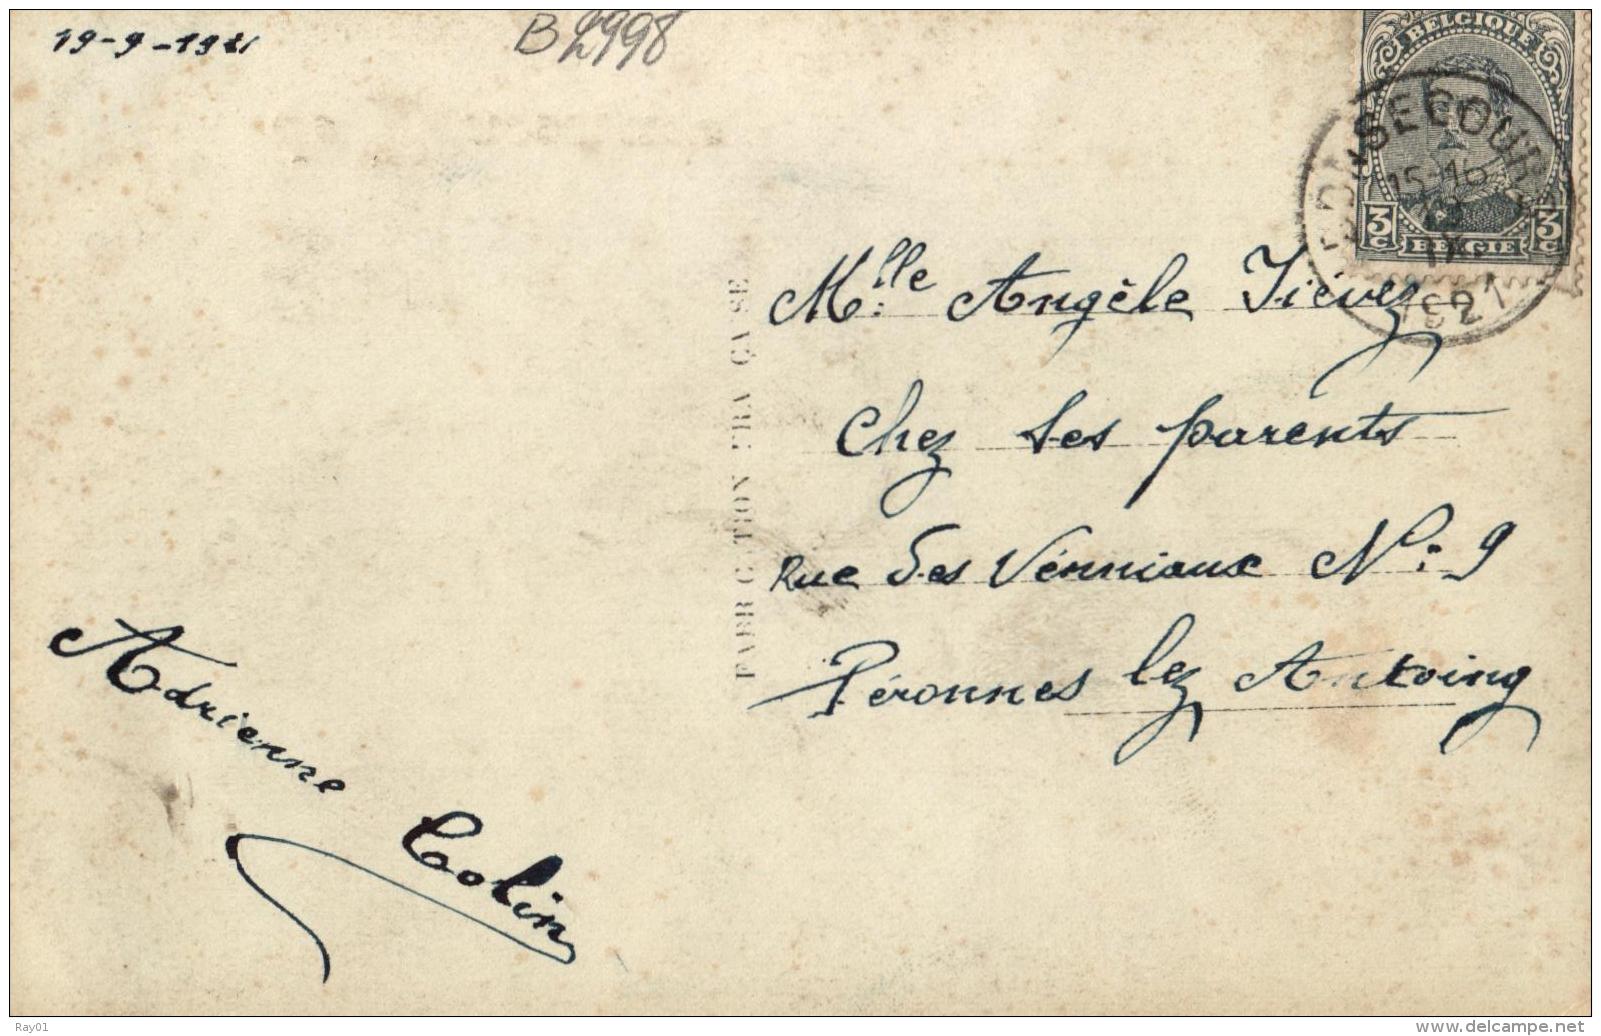 19-9-1921
B2998
BELGIQUE
BONSECOURS
15-16
19
IX
1921
3c BELGIE 3c
Mlle Angèle Tiévez
Chez ses parents
Rue des Vénniaux N: 9
Péronnes lez Antoing
FABRICATION FRANÇAISE
Adrienne
Colin
Ray01
www.delcampe.net